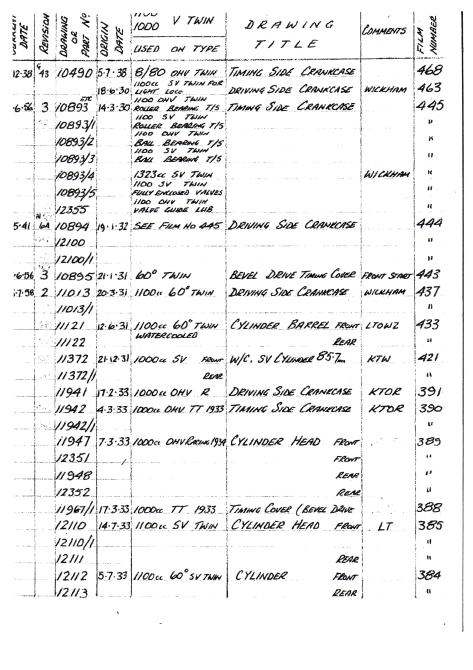 CURRENT DATE REVISION DRAWING OR PART Nº ORIGIN DATE 1100 1000 V TWIN USED ON TYPE DRAWING TITLE COMMENTS FILM NUMBER
12·38 G 43 10490 5·7·38 8/80 OHV TWIN TIMING SIDE CRANKCASE 468
18·6·30 1100cc SV TWIN FOR LIGHT LOCO DRIVING SIDE CRANKCASE WICKHAM 463
·6·56 3 10893 ETC 14·3·30 1100 OHV TWIN ROLLER BEARING T/S TIMING SIDE CRANKCASE 445
10893/1 1100 SV TWIN ROLLER BEARING T/S "
10893/2 1100 OHV TWIN BALL BEARING T/S "
10893/3 1100 SV TWIN BALL BEARING T/S "
10893/4 1323cc SV TWIN WICKHAM "
10893/5 1100 SV TWIN FULLY ENCLOSED VALVES "
12355 1100 OHV TWIN VALVE GUIDE LUB. "
5·41 N 6A 10894 19·1·32 SEE FILM No 445 DRIVING SIDE CRANKCASE 444
12100 "
12100/1 "
·6·56 3 10895 21·1·31 60° TWIN BEVEL DRIVE TIMING COVER FRONT START 443
1·7·58 2 11013 20·3·31 1100cc 60° TWIN DRIVING SIDE CRANKCASE WICKHAM 437
11013/1 "
11121 12·6·31 1100cc 60° TWIN WATERCOOLED CYLINDER BARREL FRONT LTOWZ 433
11122 REAR "
11372 21·12·31 1000cc SV FRONT W/C. SV CYLINDER 85·7m KTW 421
11372/1 REAR
11941 17·2·33 1000cc OHV R DRIVING SIDE CRANKCASE KTOR 391
11942 4·3·33 1000cc OHV TT 1933 TIMING SIDE CRANKCASE KTOR 390
11942/1 "
11947 7·3·33 1000cc OHV RACING 1934 CYLINDER HEAD FRONT 389
12351 FRONT "
11948 REAR "
12352 REAR "
11967/1 17·3·33 1000cc TT 1933 TIMING COVER (BEVEL DRIVE 388
12110 14·7·33 1100cc SV TWIN CYLINDER HEAD FRONT LT 385
12110/1 "
12111 REAR "
12112 5·7·33 1100cc 60° SV TWIN CYLINDER FRONT 384
12113 REAR "